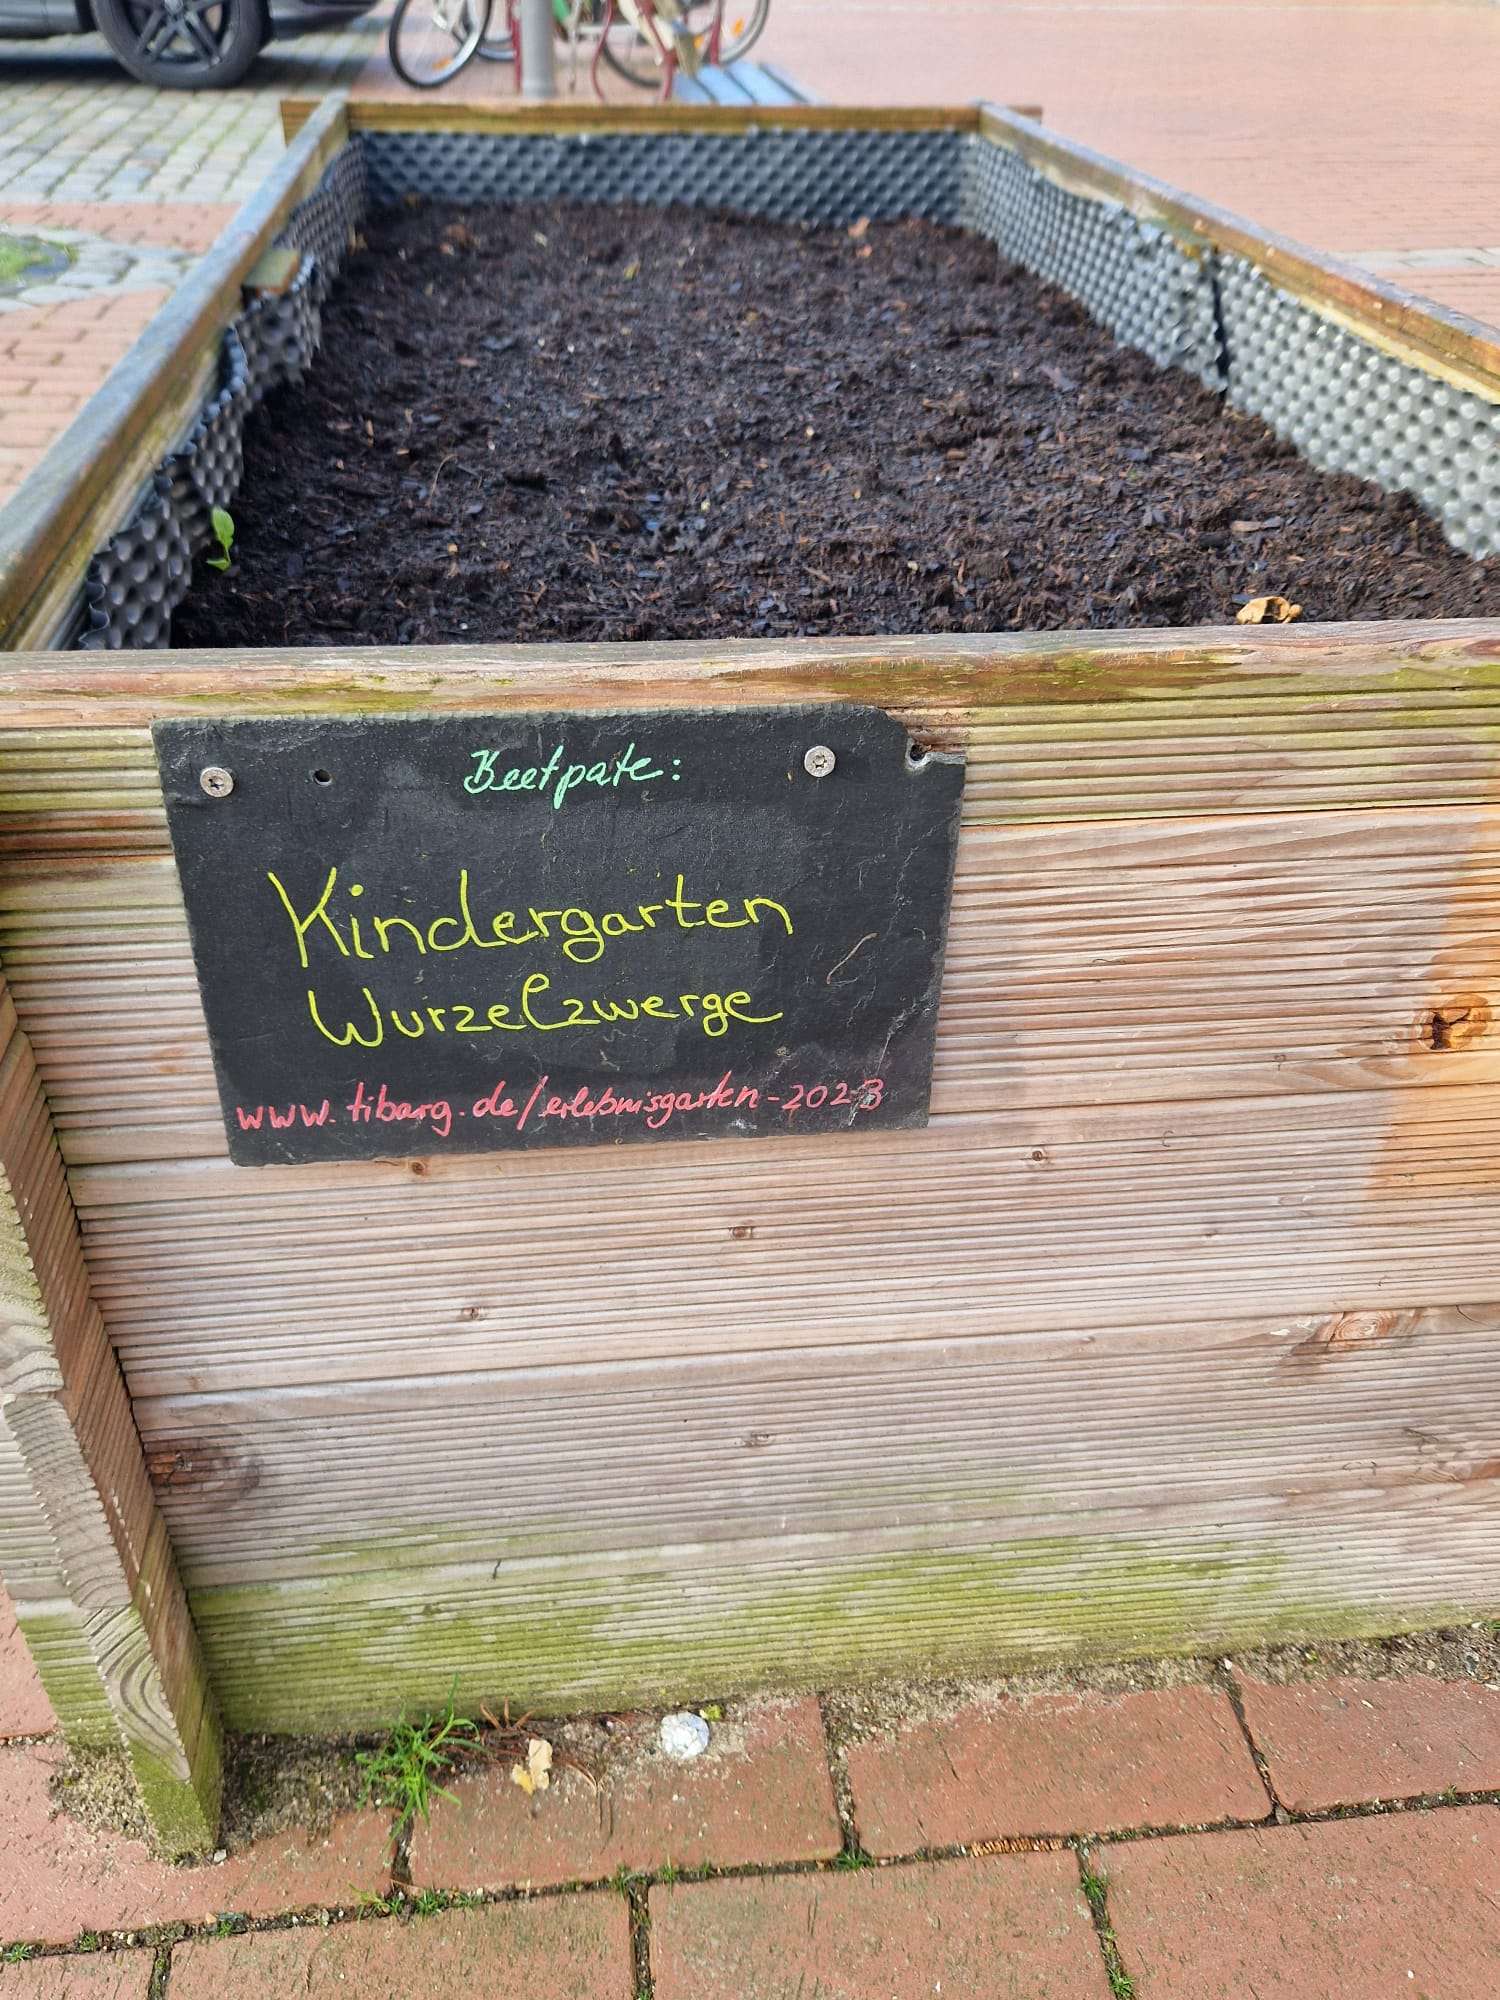 Beetpate:
Kindergarten
Wurzelzwerge
www.tibarg.de/erlebnisgarten-2023